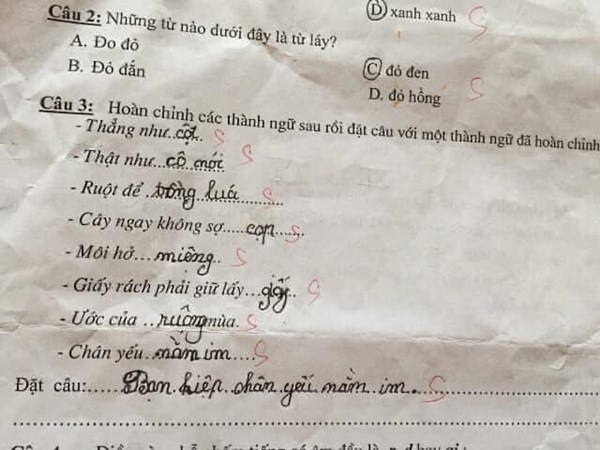 D xanh xanh S
Câu 2: Những từ nào dưới đây là từ láy?
A. Đo đỏ
C. đỏ đen S
B. Đỏ đắn
D. đỏ hồng
Câu 3: Hoàn chỉnh các thành ngữ sau rồi đặt câu với một thành ngữ đã hoàn chỉnh
- Thẳng như..cột.. S
- Thật như...cô mới S
- Ruột để ..trồng luá........ S
- Cây ngay không sợ.....cọp..... S
- Môi hở...miệng.. S
- Giấy rách phải giữ lấy...giấy.. S
- Ước của ..ruộng mùa. S
- Chân yếu..mằm im.... S
Đặt câu:......Bạn hiệp chân yếu mằm im. S